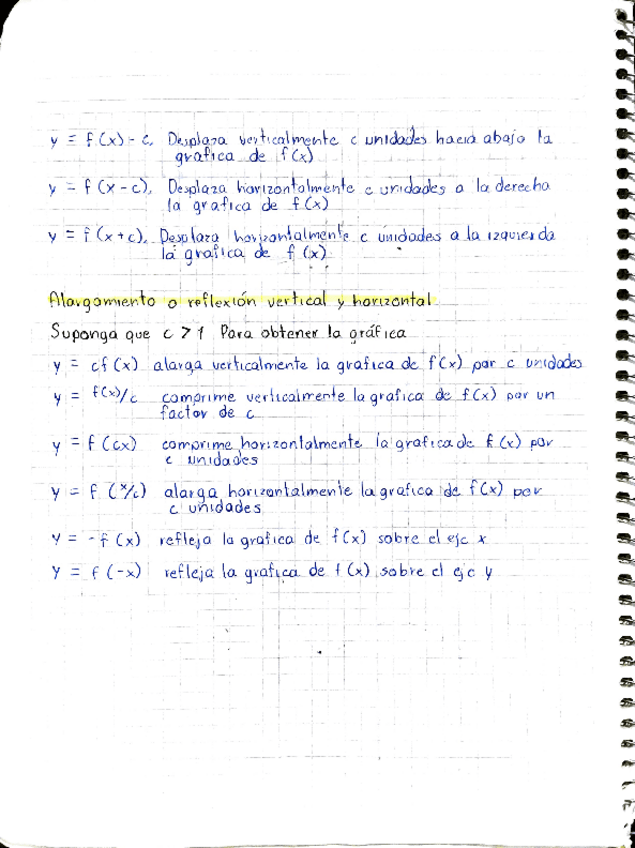 y = f(x) - c, Desplaza verticalmente c unidades hacia abajo la
grafica de f(x)
y = f(x - c), Desplaza horizontalmente c unidades a la derecha
la grafica de f(x)
y = f(x + c), Desplaza horizontalmente c unidades a la izquierda
la grafica de f(x)
Alargamiento o reflexión vertical y horizontal
Suponga que c > 1 Para obtener la gráfica
y = cf(x) alarga verticalmente la grafica de f(x) por c unidades
y = f(x)/c comprime verticalmente la grafica de f(x) por un
factor de c
y = f(cx) comprime horizontalmente la grafica de f(x) por
c unidades
y = f(x/c) alarga horizontalmente la grafica de f(x) por
c unidades
y = -f(x) refleja la grafica de f(x) sobre el eje x
y = f(-x) refleja la grafica de f(x) sobre el eje y